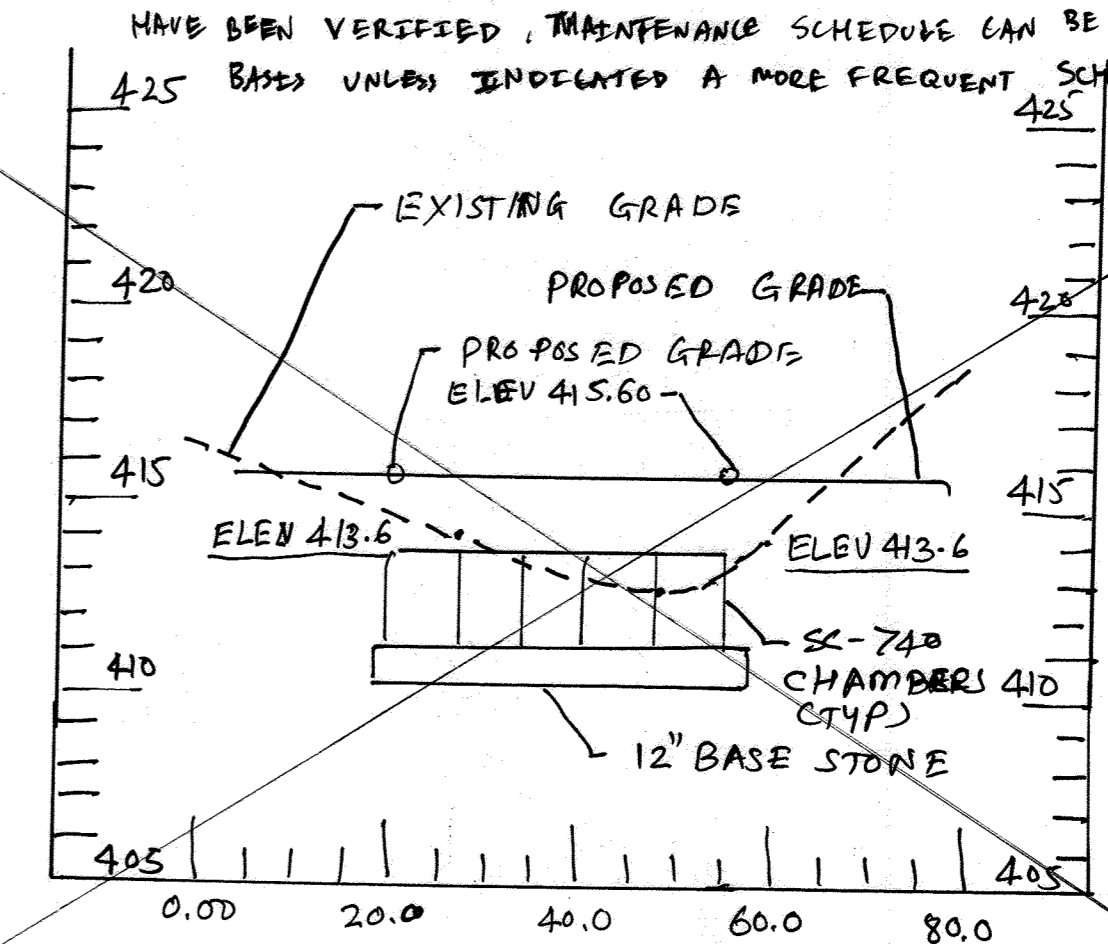 HAVE BEEN VERIFIED, MAINTENANCE SCHEDULE CAN BE
BASIS UNLESS INDICATED A MORE FREQUENT SCH
425
425
EXISTING GRADE
420
PROPOSED GRADE
420
PROPOSED GRADE
ELEV 415.60
415
415
ELEV 413.6
ELEV 413.6
SC-740
410
CHAMBERS
410
(TYP)
12" BASE STONE
405
405
0.00 20.0 40.0 60.0 80.0